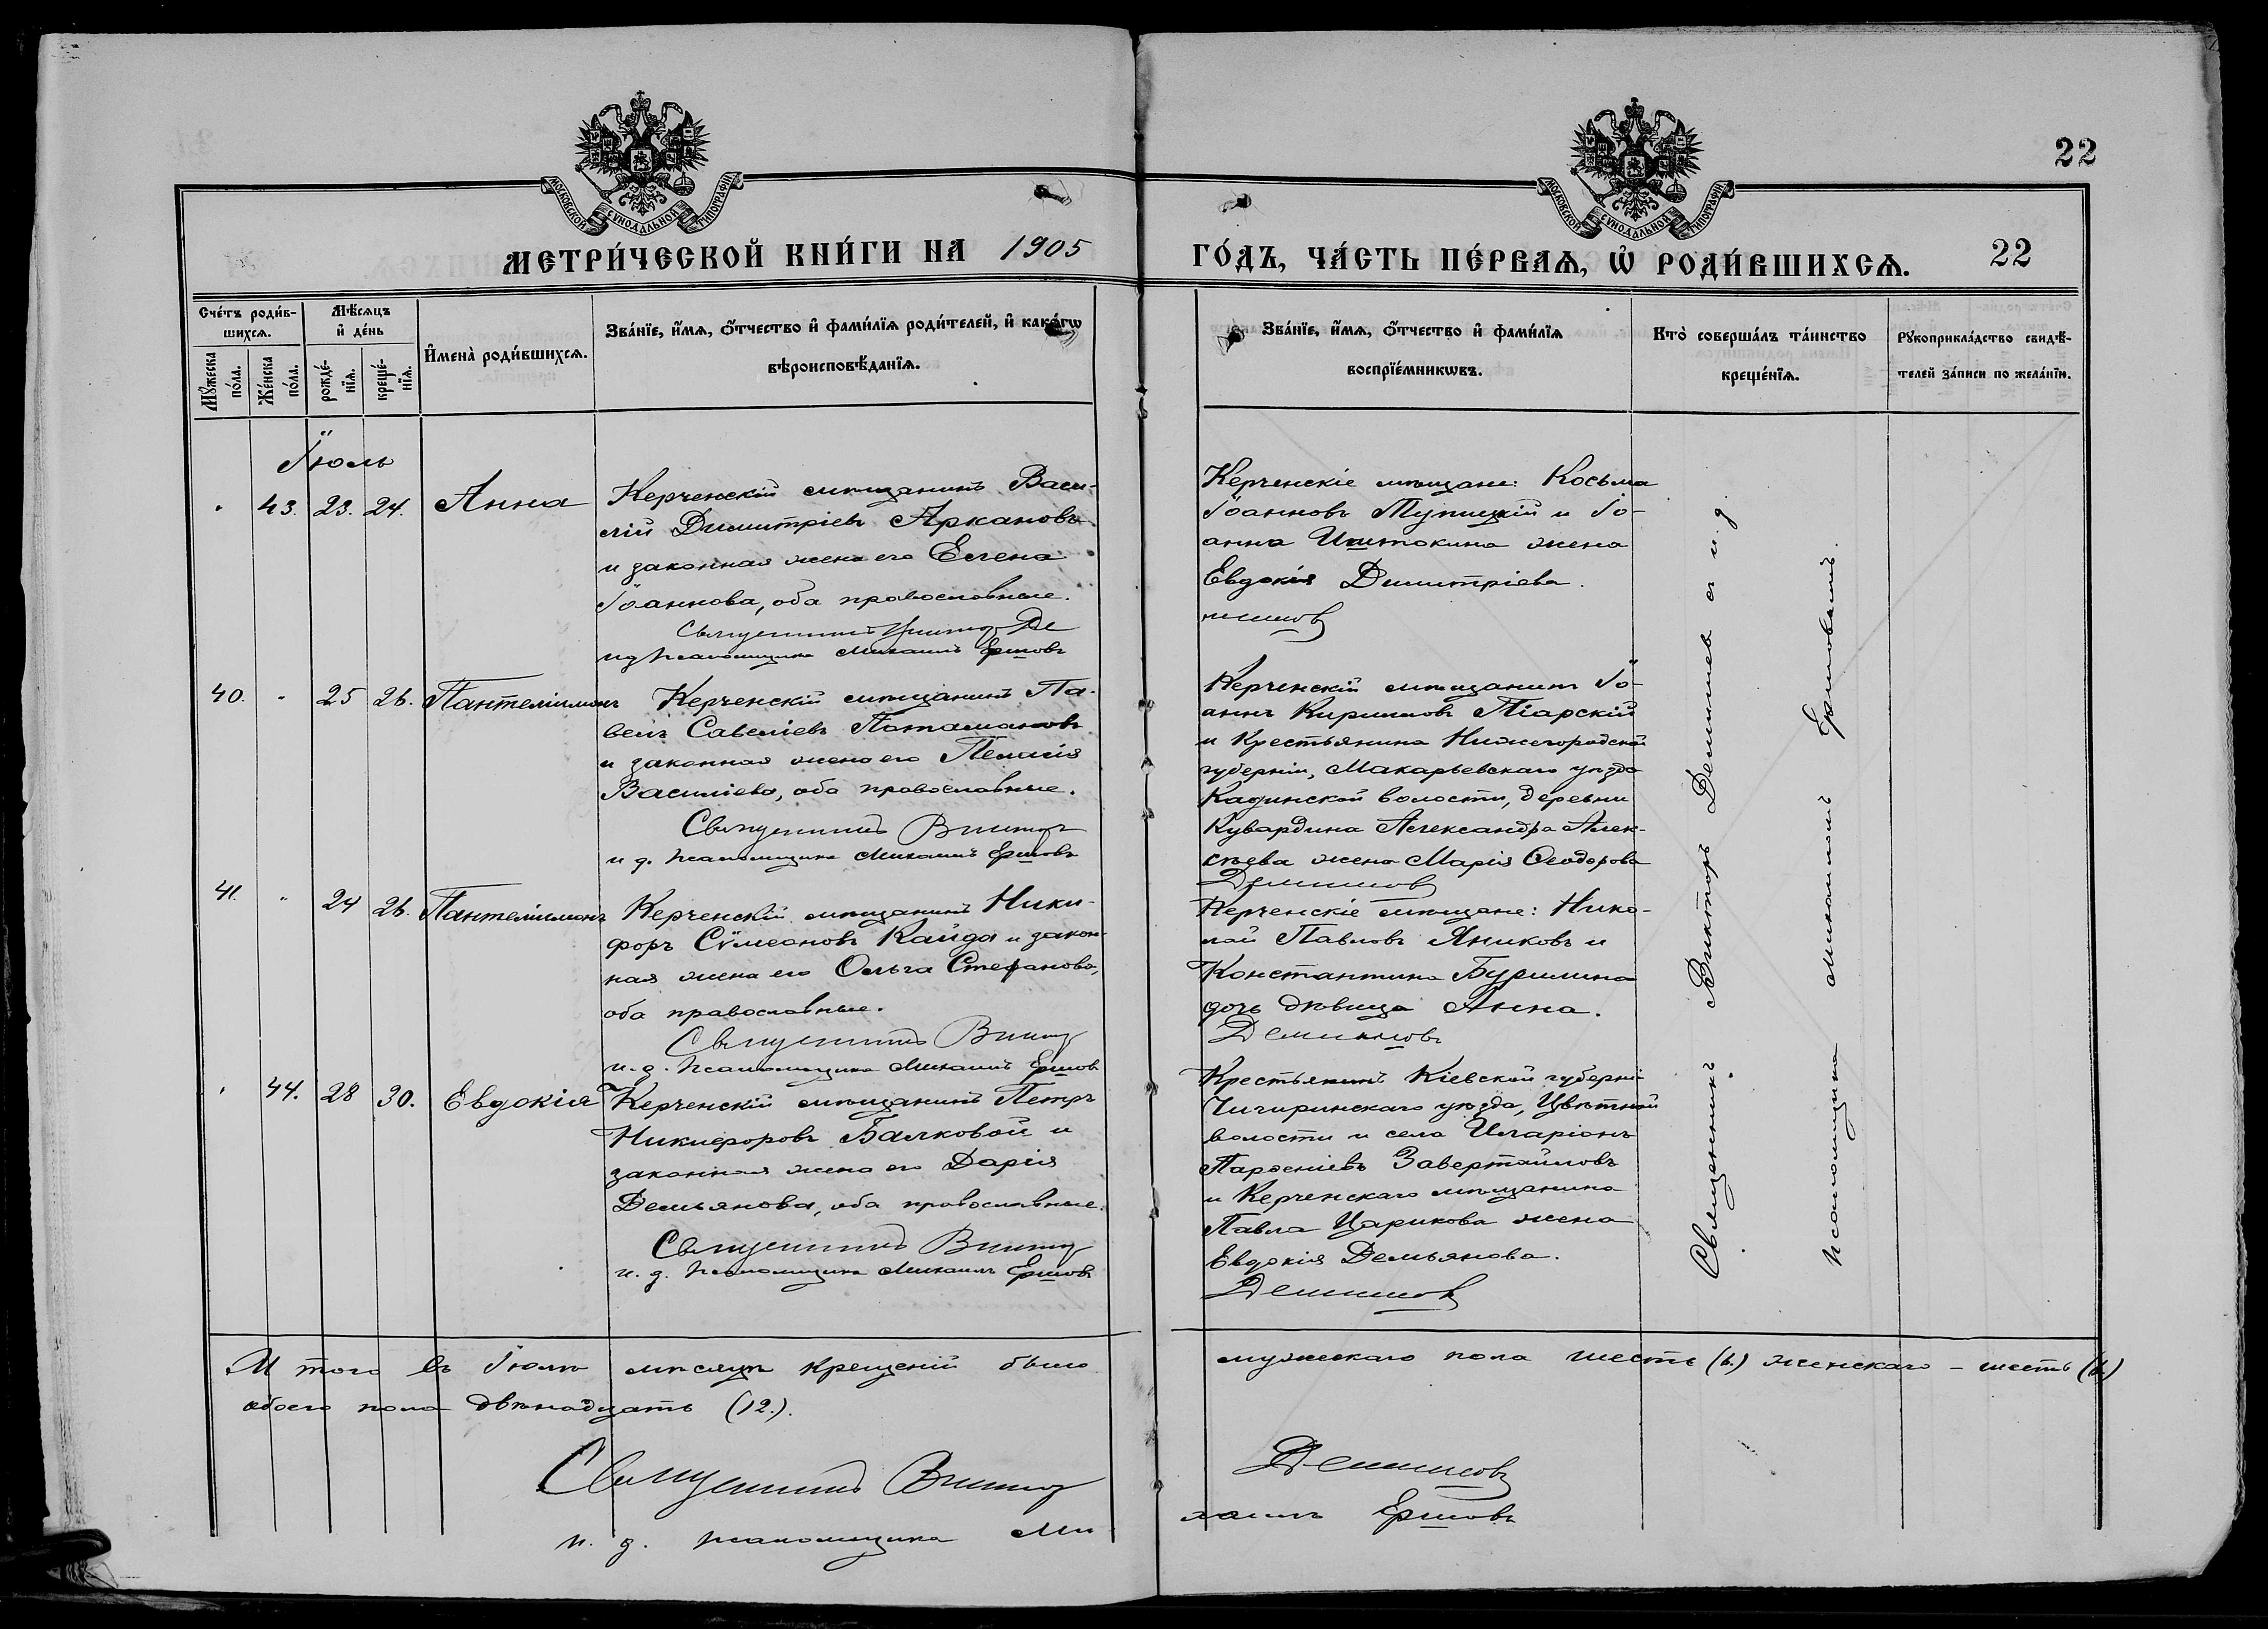 22
МОСКОВСКОЙ СѴНОДАЛЬНОЙ ТИПОГРАФІИ
МОСКОВСКОЙ СѴНОДАЛЬНОЙ ТИПОГРАФІИ
МЕТРИ́ЧЕСКОЙ КНИ́ГИ НА 1905
ГО́ДЪ, ЧА́СТЬ ПЕ́РВАѦ, Ѡ҆ РОДИ́ВШИХСѦ.
22
Сче́тъ роди́в-
шихсѧ.
Мꙋ́жеска
по́ла.
Же́нска
по́ла.
Мѣ́сѧцъ
и҆ де́нь
рожде́-
нїѧ.
креще́-
нїѧ.
И҆мена̀ роди́вшихсѧ.
Зва́нїе, и҆́мѧ, ѻ҆́тчество и҆ фами́лїѧ роди́телей, и҆ како́гѡ
вѣроисповѣ́данїѧ.
Зва́нїе, и҆́мѧ, ѻ҆́тчество и҆ фами́лїѧ
воспрїе́мникѡвъ.
Кто̀ соверша́лъ та́инство
креще́нїѧ.
Рꙋкоприкла́дство свидѣ́-
телей за́писи по жела́нїю.
Іюль
43. 23. 24. Анна
Керченскій мѣщанинъ Васи-
лій Димитріевъ Аркановъ
и законная жена его Елена
Іоаннова, оба православные.
Священникъ Викторъ Де
ид псаломщика Михаилъ Ершовъ
Керченскіе мѣщане: Косьма
Іоанновъ Тупицкій и Іо-
анна Ишткина жена
Евдокія Димитріева.
мишовъ
40. 25 26. Пантелиимонъ
Керченскій мѣщанинъ Па-
велъ Савеліевъ Патамановъ
и законная жена его Пелагія
Василіева, оба православные.
Священникъ Викторъ
и д. псаломщика Михаилъ Ершовъ
Керченскій мѣщанинъ Іо-
аннъ Кирилловъ Піарскій
и Крестьянина Нижегородской
губерніи, Макарьевскаго уѣзда
волости, деревни
Кувардина Александра Алек-
сѣева жена Марія Ѳеодорова
Демишовъ
41. 24 26. Пантелиимонъ
Керченскій мѣщанинъ Ники-
форъ Сѵмеоновъ Кайда и закон-
ная жена его Ольга Стефанова,
оба православные.
Священникъ Викторъ
и. д. псаломщика Михаилъ Ершовъ
Керченскіе мѣщане: Нико-
лай Павловъ Яниковъ и
Константина Бурилина
дочь дѣвица Анна.
Демишовъ
44. 28 30. Евдокія
Керченскій мѣщанинъ Петръ
Никифоровъ Балковой и
законная жена его Дарія
Демьянова, оба православные.
Священникъ Викторъ
и. д. псаломщика Михаилъ Ершовъ
Крестьянинъ Кіевской губерніи
Чигиринскаго уѣзда, Цвѣтной
волости и села Иларіонъ
Парѳеніевъ Завертайловъ
и Керченскаго мѣщанина
Павла Царикова жена
Евдокія Демьянова.
Демишовъ
Священникъ Викторъ Демишевъ съ и. д.
псаломщика Михаиломъ Ершовымъ.
И того въ Іюлѣ мѣсяцѣ крещеній было
мужескаго пола шесть (6.) женскаго – шесть (6.)
обоего пола двѣнадцать (12.).
Священникъ Викторъ
Демишовъ
и. д. псаломщика Ми
хаилъ Ершовъ